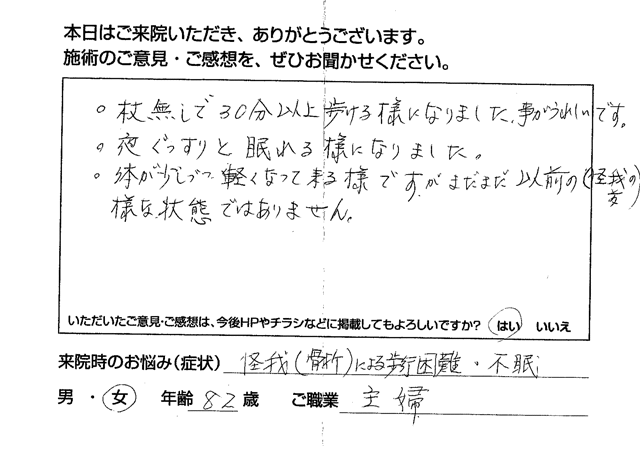 本日はご来院いただき、ありがとうございます。
施術のご意見・ご感想を、ぜひお聞かせください。
○ 杖無しで30分以上歩ける様になりました、事がうれしいです。
○ 夜ぐっすりと眠れる様になりました。
○ 体が少しづつ軽くなって来る様ですがまだまだ以前の(怪我の
様な状態ではありません。
いただいたご意見・ご感想は、今後HPやチラシなどに掲載してもよろしいですか? はい いいえ
来院時のお悩み(症状) 怪我(骨折)による歩行困難・不眠
男・女 年齢 82 歳 ご職業 主婦